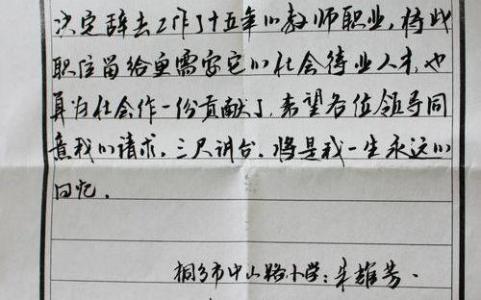 决定辞去工作了十五年的教师职业，将此
职位留给更需要它的社会待业人才，也
算为社会作一份贡献了，希望各位领导同
意我的请求。三尺讲台，将是我一生永远的
回忆。
桐乡市中山路小学：朱雄芳.